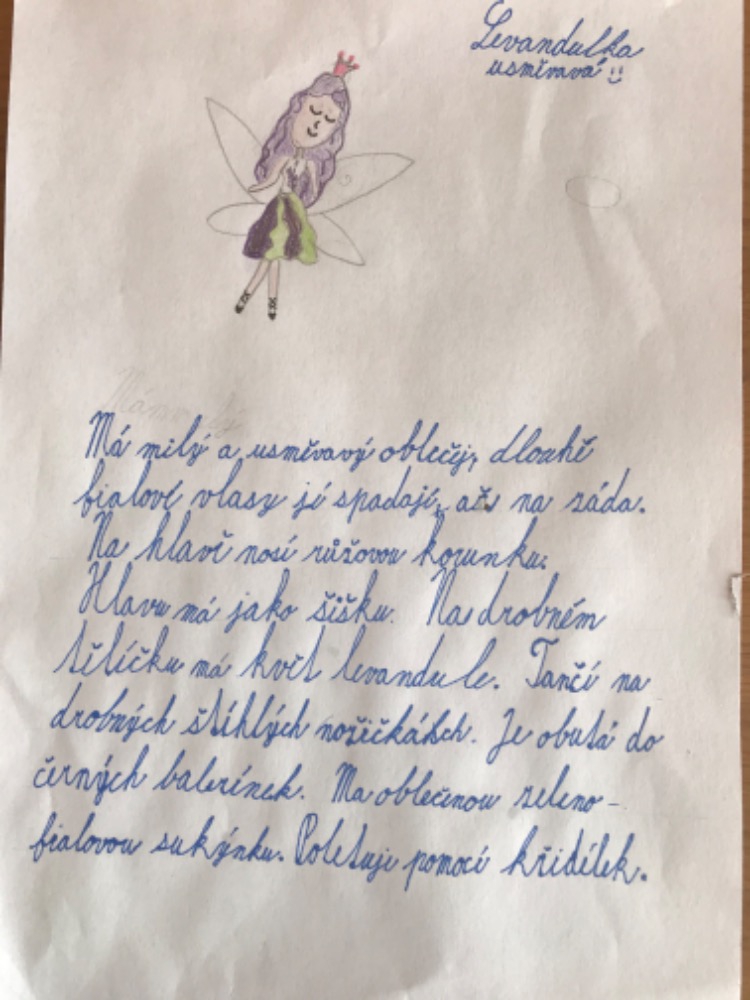 Levandulka
usměvavá :)
Má milý a usměvavý oblečej, dlouhé
fialové vlasy jí spadají, až na záda.
Na hlavě nosí růžovou korunku.
Hlavu má jako šišku. Na drobném
tělíčku má květ levandule. Tančí na
drobných štíhlých nožičkách. Je obutá do
černých balerínek. Ma oblečenou zeleno-
fialovou sukýnku. Poletuje pomocí křidélek.